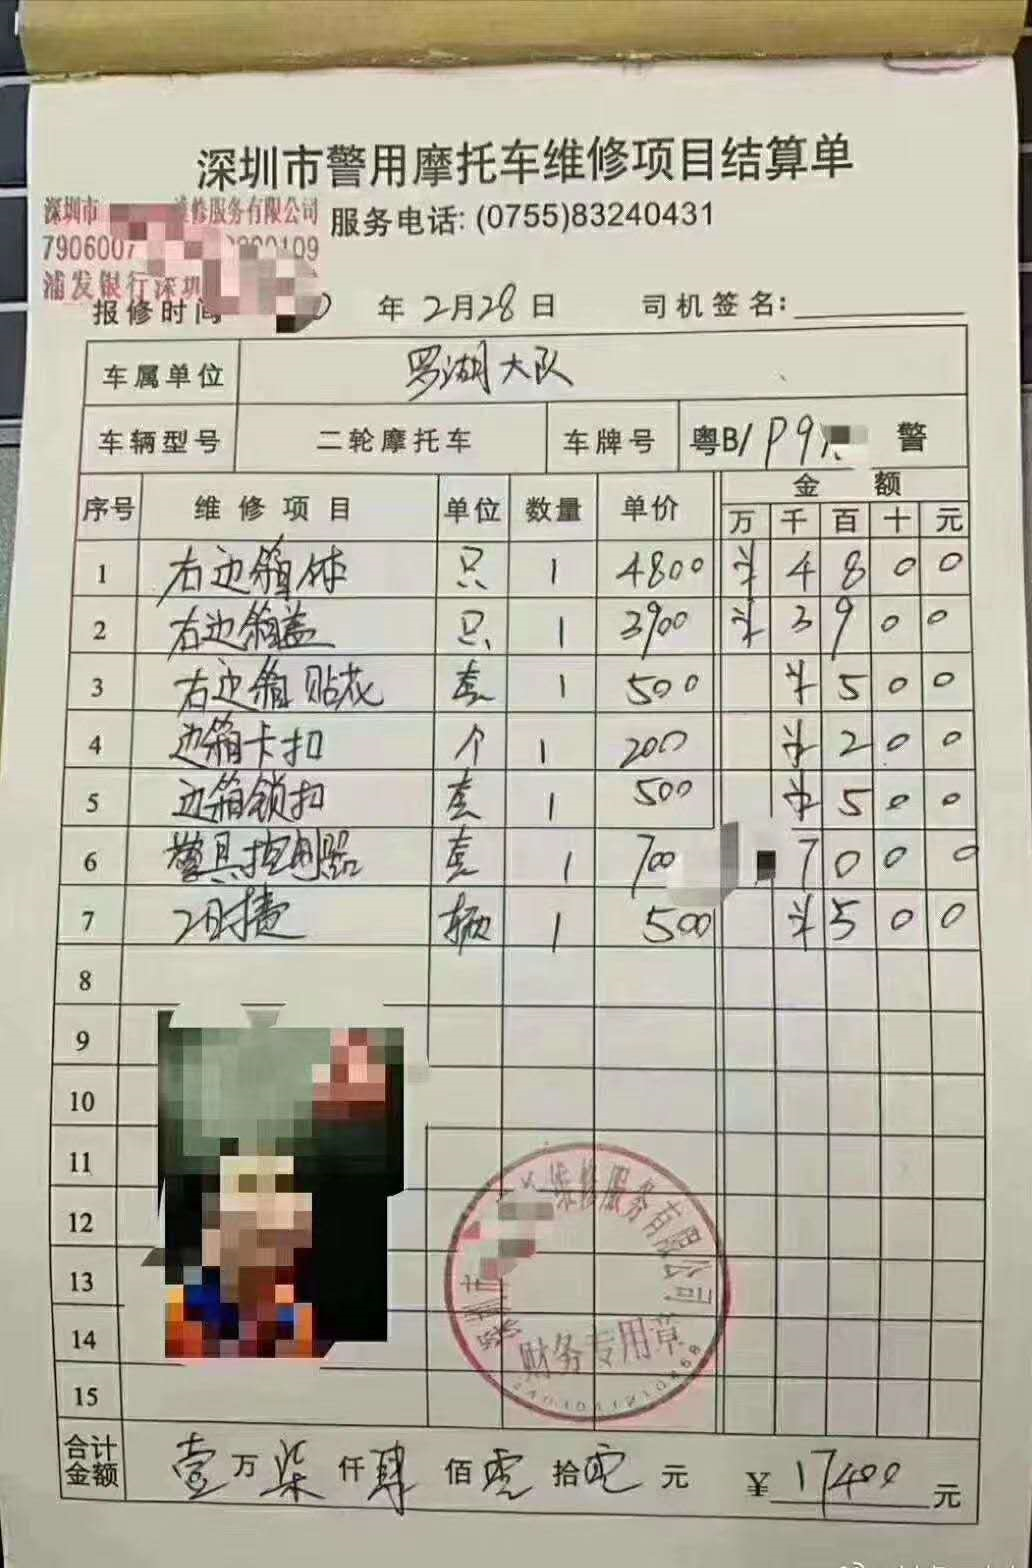 深圳市警用摩托车维修项目结算单
深圳市 维修服务有限公司 服务电话: (0755)83240431
790600
浦发银行深圳
报修时间 年 2月28日 司机签名:
车属单位 罗湖大队
车辆型号 二轮摩托车 车牌号 粤B/P9 警
序号 维修项目 单位 数量 单价 金额
万 千 百 十 元
1 右边箱体 只 1 4800 ¥ 4 8 0 0
2 右边箱盖 只 1 3900 ¥ 3 9 0 0
3 右边箱贴花 套 1 500 ¥ 5 0 0
4 边箱卡扣 个 1 200 ¥ 2 0 0
5 边箱锁扣 套 1 500 ¥ 5 0 0
6 警具控制器 套 1 700 7 0 0 0
7 工时费 辆 1 500 ¥ 5 0 0
8
9
10
11
12
13
14
15
深圳市 维修服务有限公司
财务专用章
合计金额 壹万柒仟肆佰零拾零元 ¥17400元